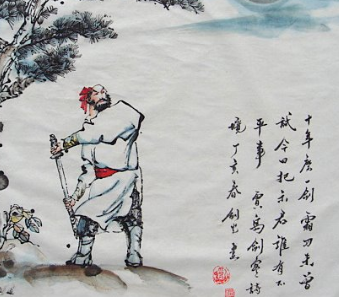 十年磨劍霜刃未曾
試今日把示君誰有不
平事 賈島劍客詩
境丁亥春劍